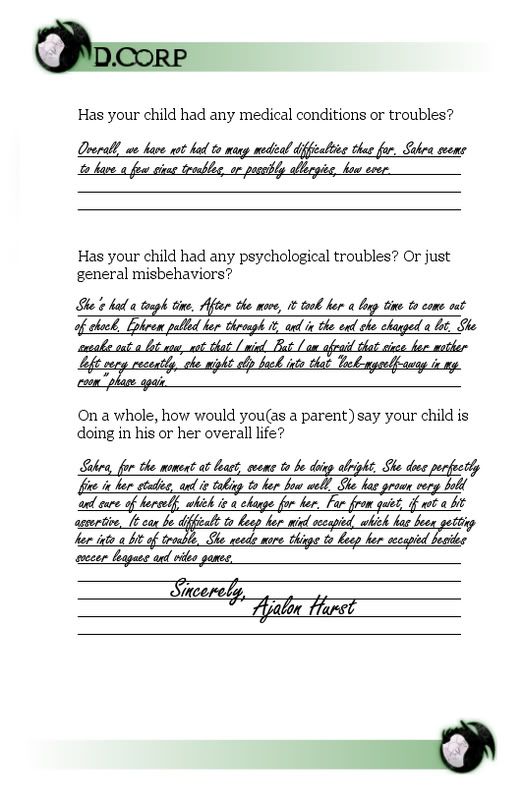 D.CORP
Has your child had any medical conditions or troubles?
Overall, we have not had to many medical difficulties thus far. Sahra seems
to have a few sinus troubles, or possibly allergies, how ever.
Has your child had any psychological troubles? Or just
general misbehaviors?
She's had a tough time. After the move, it took her a long time to come out
of shock. Ephrem pulled her through it, and in the end she changed a lot. She
sneaks out a lot now, not that I mind. But I am afraid that since her mother
left very recently, she might slip back into that "lock-myself-away in my
room" phase again.
On a whole, how would you(as a parent) say your child is
doing in his or her overall life?
Sahra, for the moment at least, seems to be doing alright. She does perfectly
fine in her studies, and is taking to her bow well. She has grown very bold
and sure of herself, which is a change for her. Far from quiet, if not a bit
assertive. It can be difficult to keep her mind occupied, which has been getting
her into a bit of trouble. She needs more things to keep her occupied besides
soccer leagues and video games.
Sincerely,
Ajalon Hurst